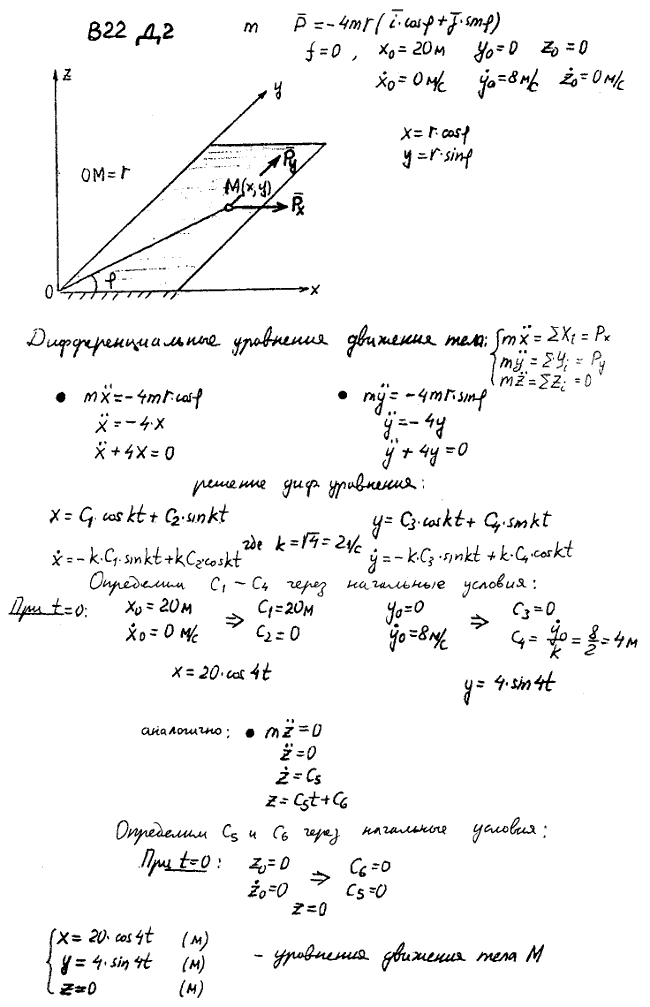 В22 Д2 m P̄ = -4mr(ī·cosφ + j̄·sinφ)
f=0, x₀=20м y₀=0 z₀=0
ẋ₀=0 м/с ẏ₀=8 м/с ż₀=0 м/с
x=r·cosφ
y=r·sinφ
z
y
OM=r
P̄y
M(x,y)
P̄x
φ
O
x
Дифференциальные уравнения движения тела: { mẍ = ΣXi = Px
mÿ = ΣYi = Py
mz̈ = ΣZi = 0
• mẍ = -4mr·cosφ • mÿ = -4mr·sinφ
ẍ = -4·x ÿ = -4y
ẍ + 4x = 0 ÿ + 4y = 0
решение диф уравнения:
x = C₁·coskt + C₂·sinkt y = C₃·coskt + C₄·sinkt
где k = √4 = 2 1/с
ẋ = -k·C₁·sinkt + kC₂coskt ẏ = -k·C₃·sinkt + k·C₄·coskt
Определим C₁ – C₄ через начальные условия:
При t=0: x₀=20м ⇒ C₁=20м y₀=0 ⇒ C₃=0
ẋ₀=0 м/с C₂=0 ẏ₀=8м/с C₄ = ẏ₀/k = 8/2 = 4 м
x = 20·cos4t
y = 4·sin4t
аналогично: • mz̈ = 0
z̈ = 0
ż = C₅
z = C₅t + C₆
Определим C₅ и C₆ через начальные условия:
При t=0: z₀=0 ⇒ C₆=0
ż₀=0 C₅=0
z=0
{ x = 20·cos4t (м)
y = 4·sin4t (м) - уравнения движения тела М
z=0 (м)